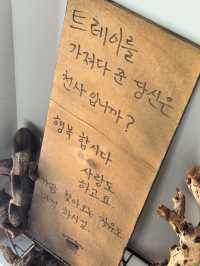 트레이를
가져다 준 당신은
천사 입니까?
행복 합시다
사랑도
하고요.
찾아오는
하시고